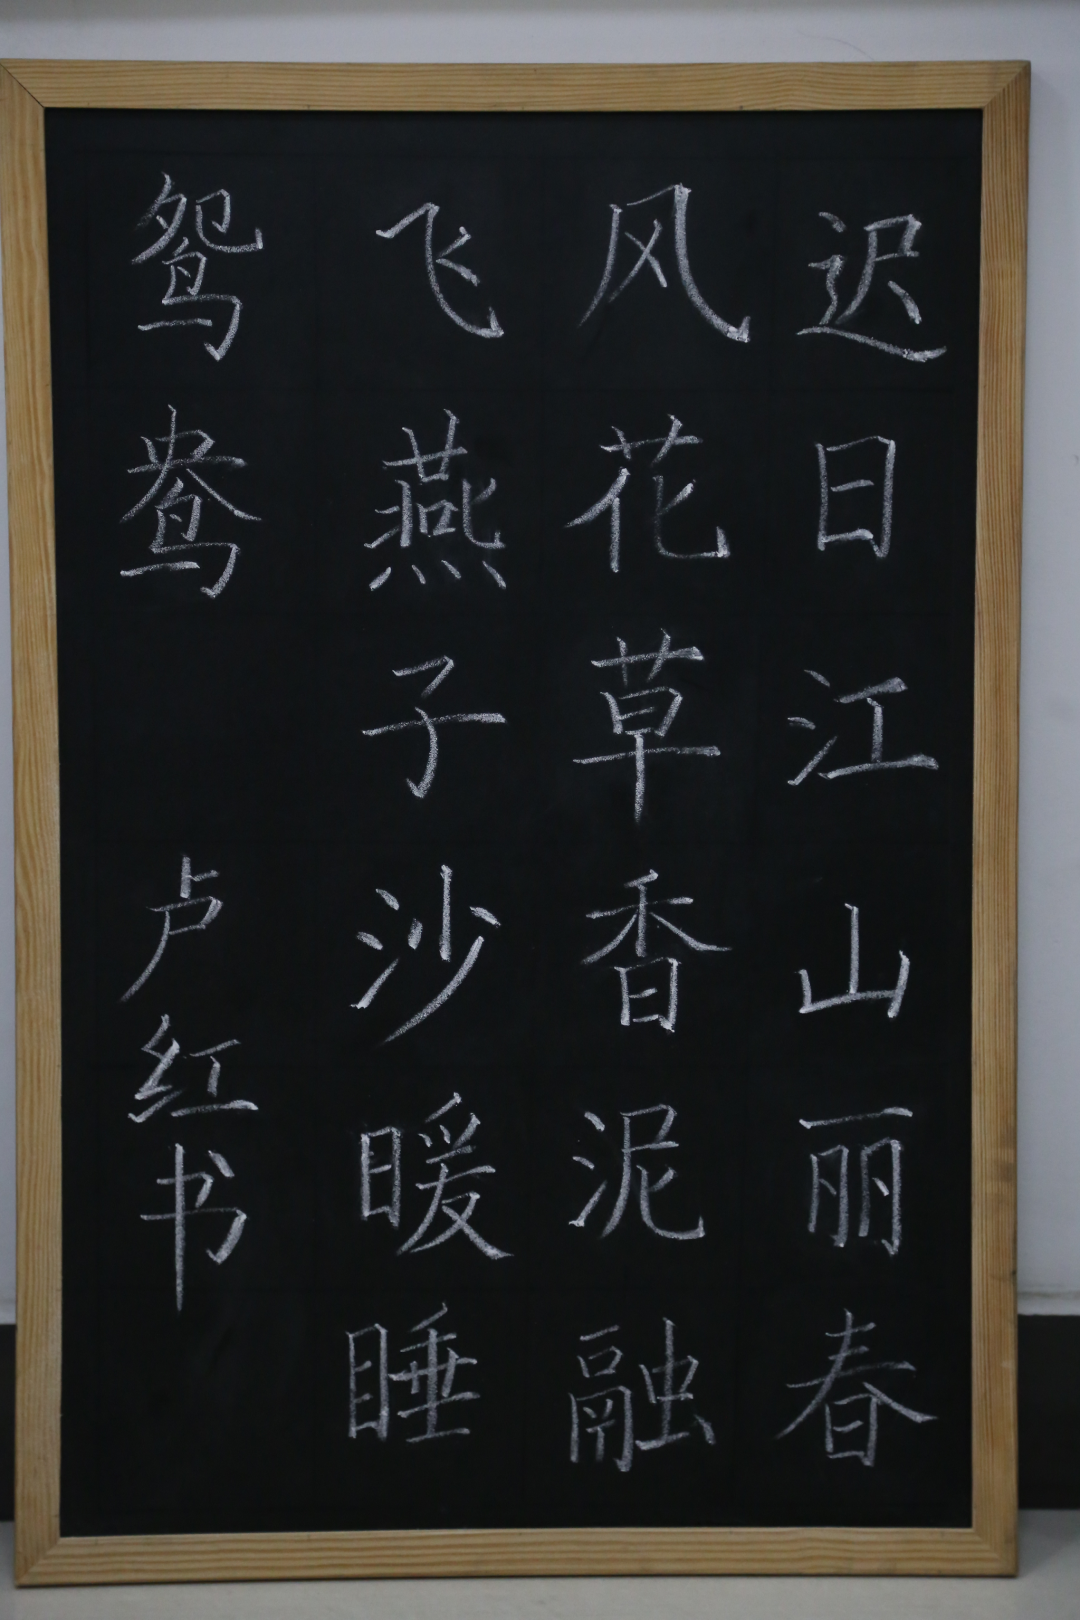 迟日江山丽春
风花草香泥融
飞燕子沙暖睡
鸳鸯
卢红书